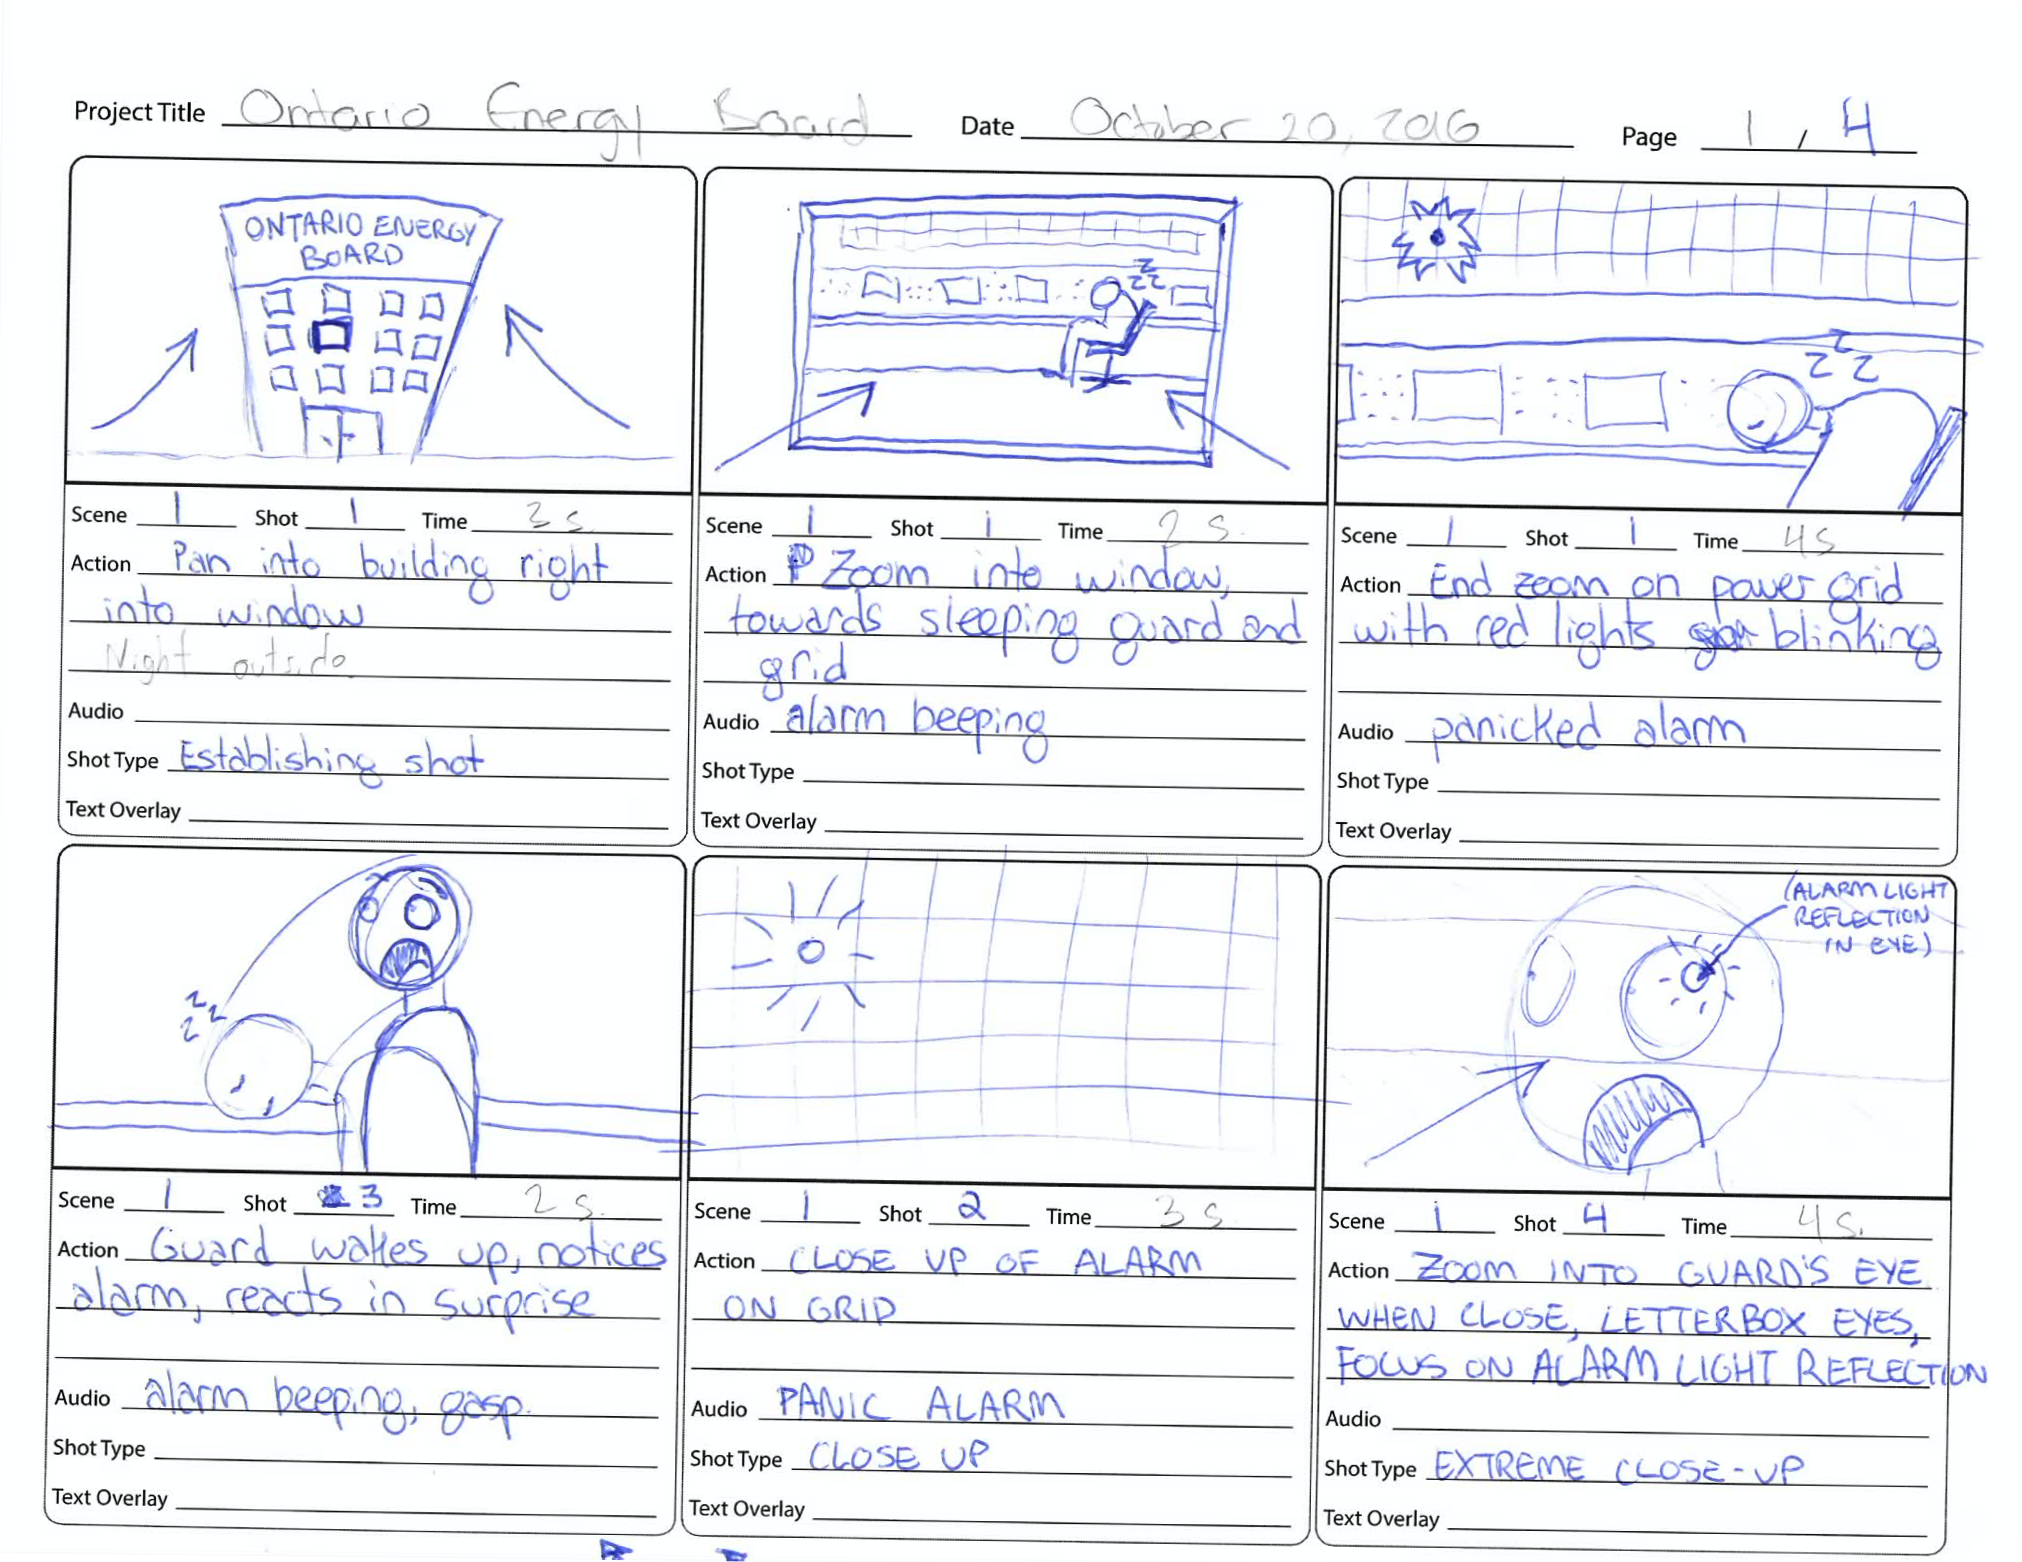 Project Title Ontario Energy Board Date October 20, 2016 Page 1 / 4
ONTARIO ENERGY
BOARD
Scene 1 Shot 1 Time 3 s
Action Pan into building right
into window
Night outside
Audio
Shot Type Establishing shot
Text Overlay
z
zz
Scene 1 Shot 1 Time 2 s.
Action Zoom into window,
towards sleeping guard and
grid
Audio alarm beeping
Shot Type
Text Overlay
z
z z
Scene 1 Shot 1 Time 4s
Action End zoom on power grid
with red lights blinking
Audio panicked alarm
Shot Type
Text Overlay
z
z z
Scene 1 Shot 3 Time 2 s.
Action Guard wakes up, notices
alarm, reacts in surprise
Audio alarm beeping, gasp.
Shot Type
Text Overlay
Scene 1 Shot 2 Time 3 s.
Action CLOSE UP OF ALARM
ON GRID
Audio PANIC ALARM
Shot Type CLOSE UP
Text Overlay
(ALARM LIGHT
REFLECTION
IN EYE)
Scene 1 Shot 4 Time 4 s.
Action ZOOM INTO GUARD'S EYE
WHEN CLOSE, LETTERBOX EYES,
FOCUS ON ALARM LIGHT REFLECTION
Audio
Shot Type EXTREME CLOSE-UP
Text Overlay